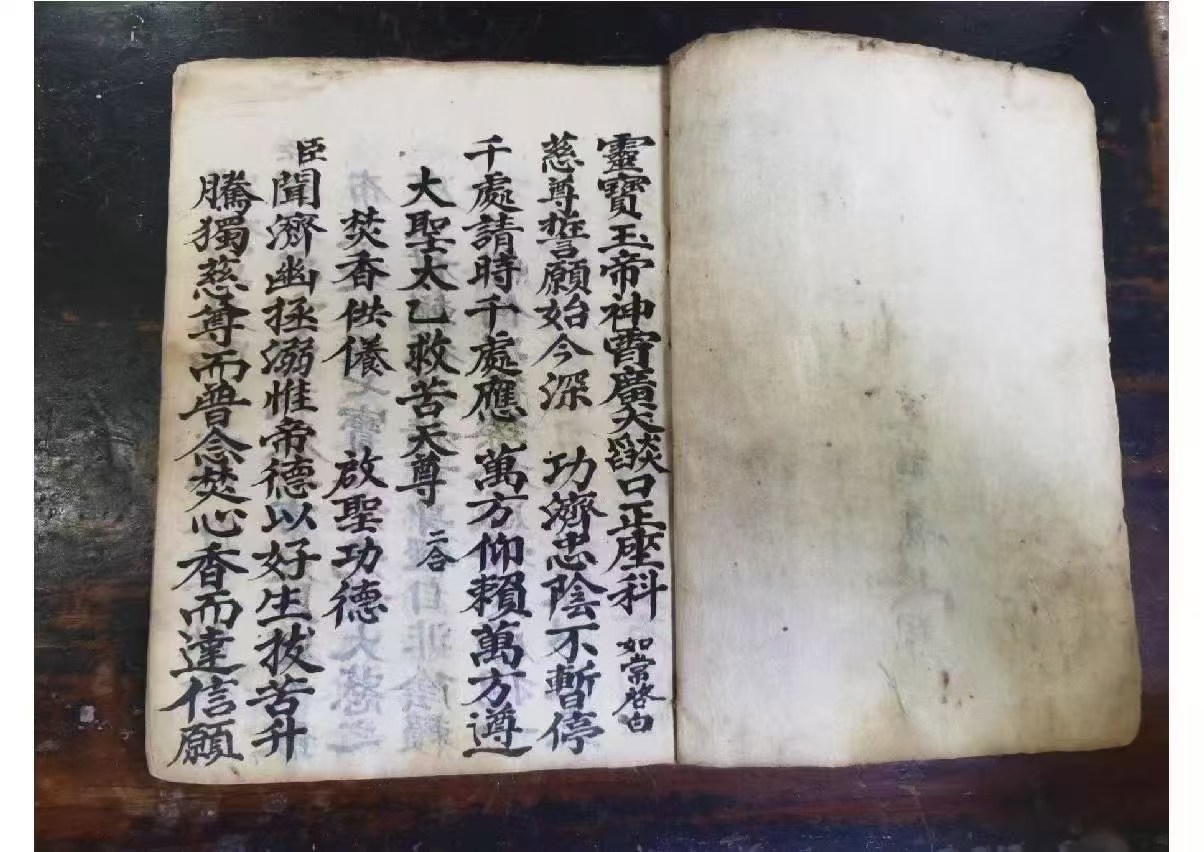 靈寶玉帝神霄廣大燄口正座科 如常啓白
慈尊誓願始今深 功濟忠陰不暫停
千處請時千處應 萬方仰賴萬方遵
大聖太乙救苦天尊 二合
焚香供儀 啟聖功德
臣聞濟幽拯溺惟帝德以好生拔苦升
騰獨慈尊而普念焚心香而達信願